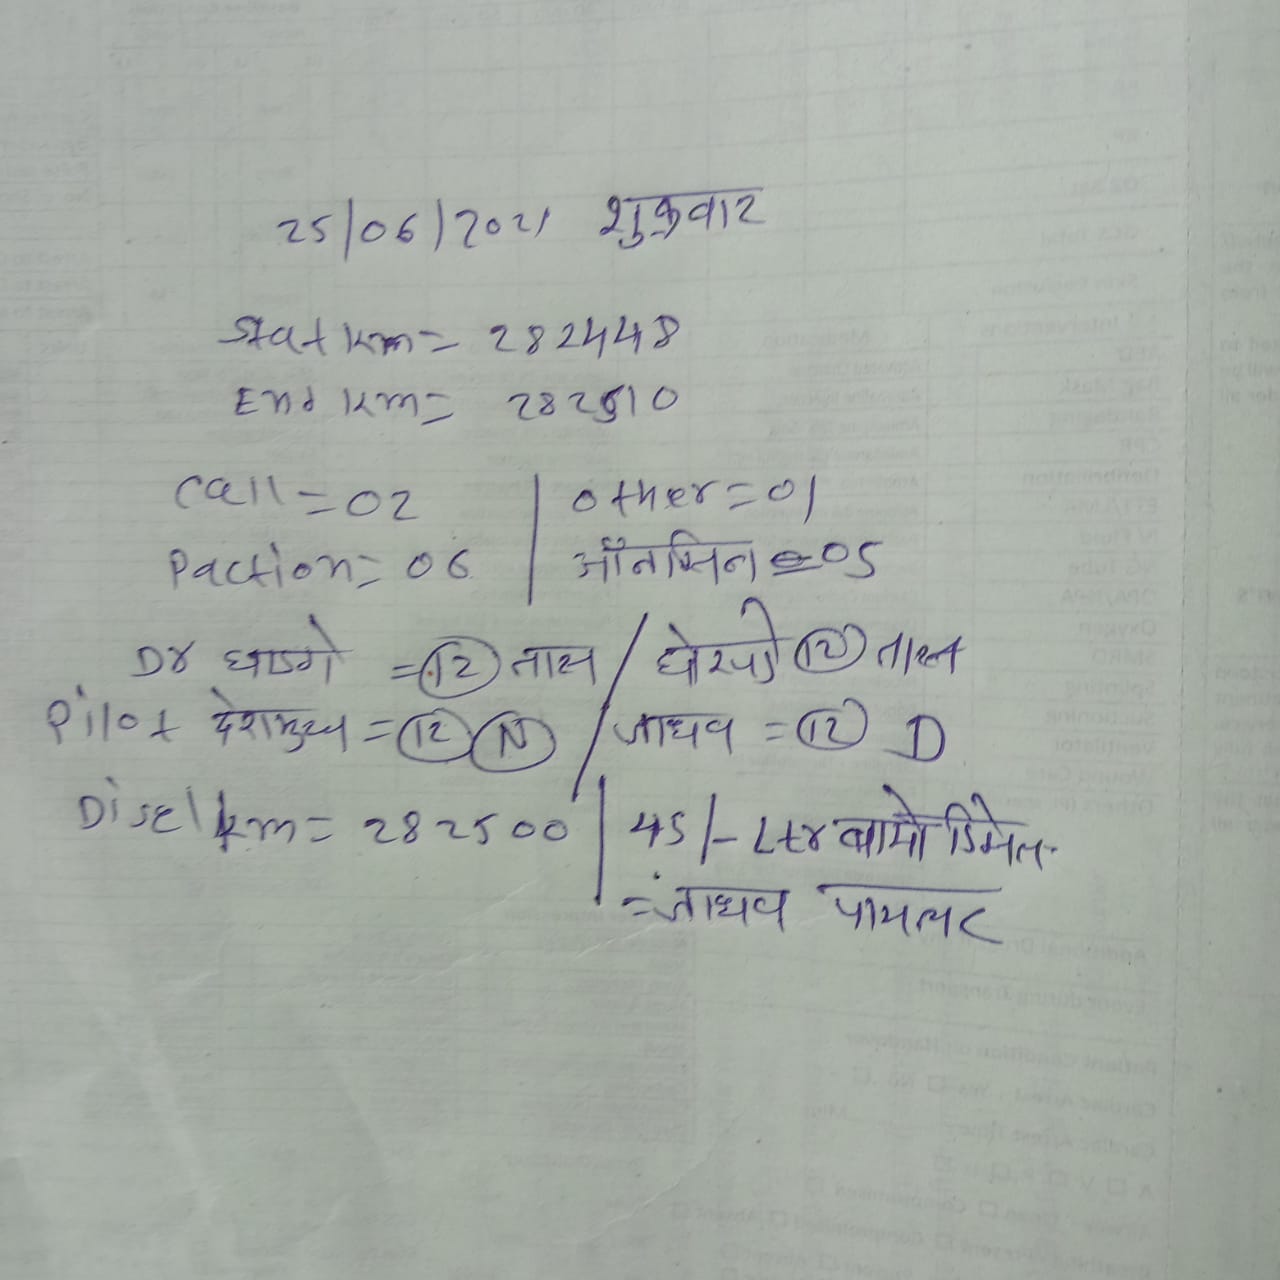 25/06/2021 शुक्रवार
Stat km = 282448
End km = 282510
Call = 02 | other = 01
Paction = 06 | ऑनसिन = 05
Dr घाडगे = 12 तास / घोरपडे 12 तास
Pilot देशमुख = 12 N / जाधव = 12 D
Disel km = 282500 | 45/- Ltr बायो डिझेल
= जाधव पायलट